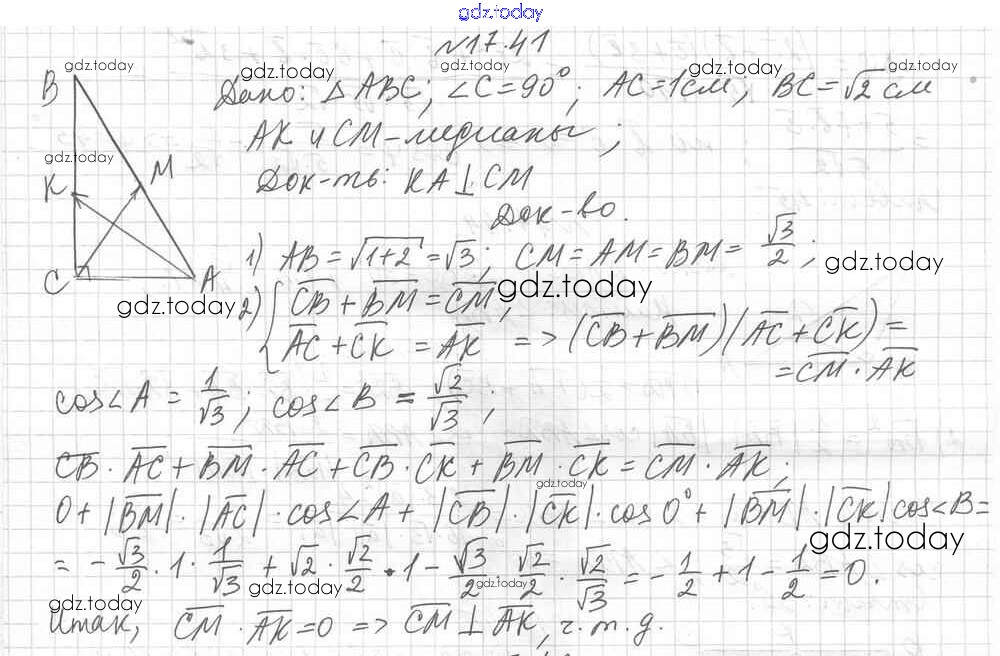 gdz.today
№17.41
Дано: △ABC; ∠C=90°; AC=1см; BC=√2 см
AK и CM-медианы;
Док-ть: KA⊥CM
Док-во.
B
K
M
C
A
1) AB=√(1+2)=√3; CM=AM=BM=√3/2;
2) { C̅B̅+B̅M̅=C̅M̅,
A̅C̅+C̅K̅=A̅K̅ => (C̅B̅+B̅M̅)(A̅C̅+C̅K̅)=
=C̅M̅·A̅K̅
cos∠A=1/√3; cos∠B=√2/√3;
C̅B̅·A̅C̅+B̅M̅·A̅C̅+C̅B̅·C̅K̅+B̅M̅·C̅K̅=C̅M̅·A̅K̅;
0+|B̅M̅|·|A̅C̅|·cos∠A+|C̅B̅|·|C̅K̅|·cos0°+|B̅M̅|·|C̅K̅|cos∠B=
=-√3/2·1·1/√3+√2·√2/2·1-√3/2·√2/2·√2/√3=-1/2+1-1/2=0.
Итак, C̅M̅·A̅K̅=0 => C̅M̅⊥A̅K̅, ч.т.д.
gdz.today
gdz.today
gdz.today
gdz.today
gdz.today
gdz.today
gdz.today
gdz.today
gdz.today
gdz.today
gdz.today
gdz.today
gdz.today
gdz.today